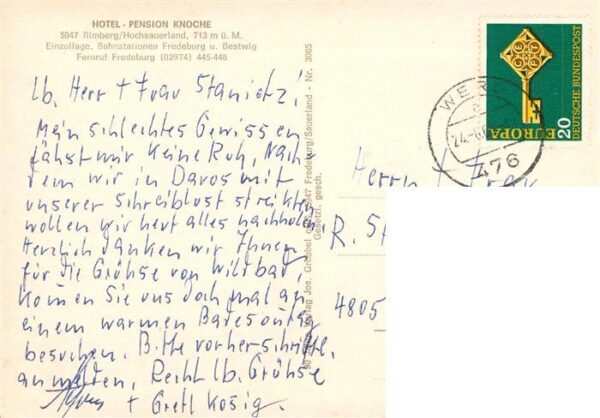 HOTEL - PENSION KNOCHE
5947 Rimberg/Hochsauerland, 713 m ü. M.
Einzellage, Bahnstationen Fredeburg u. Bestwig
Fernruf Fredeburg (02974) 445-446
lb. Herr + Frau Stanietz!
Mein schlechtes Gewissen
lähst mir keine Ruh, Nach-
dem wir in Davos mit
unserer Schreiblust streikten
wollen wir heut alles nachholen
Herzlich danken wir Ihnen
für die Grühse von Wildbad,
kommen Sie uns doch mal an
einem warmen Badesontag
besuchen. Bitte vorher schriftl.
anmelden, Recht lb. Grühse
+ Gretl Kosig.
Verlag Jos. Grobbel 5947 Fredeburg/Sauerland - Nr. 3065
Gesetzl. gesch.
WERL
24.
476
EUROPA
CEPT
20
DEUTSCHE BUNDESPOST
Herrn + Frau
R. St
4805